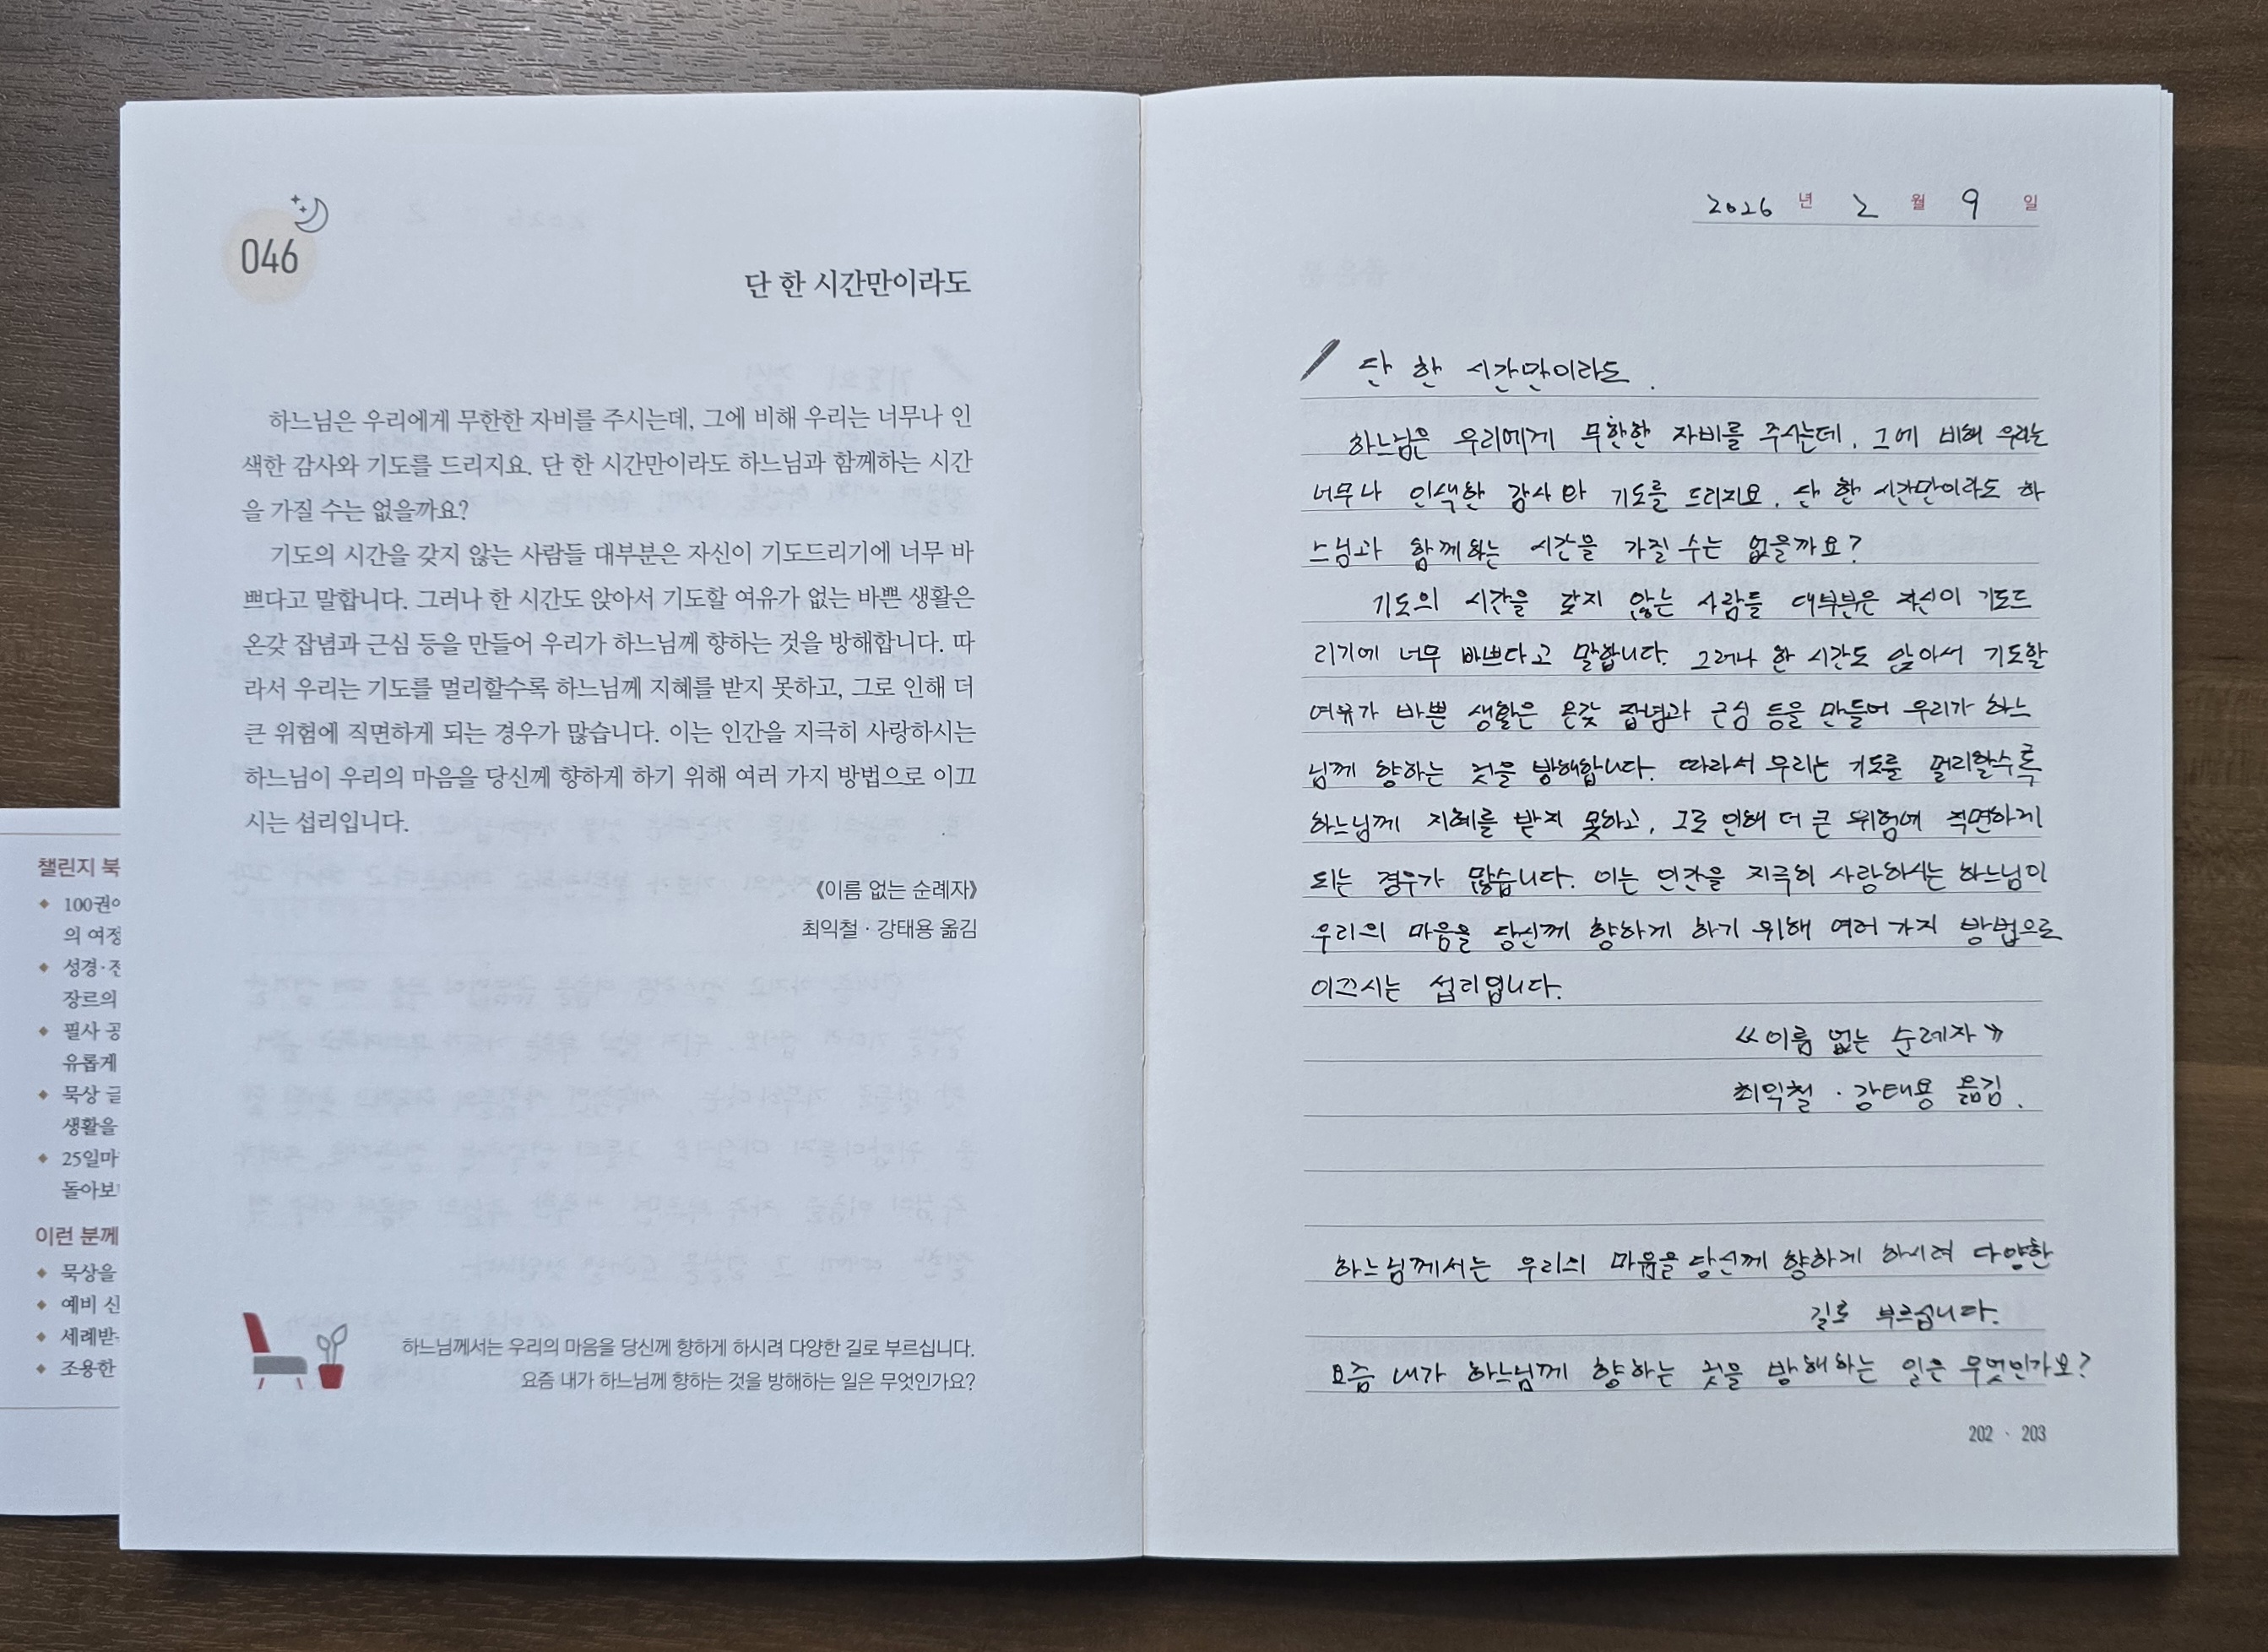 046
단 한 시간만이라도
하느님은 우리에게 무한한 자비를 주시는데, 그에 비해 우리는 너무나 인
색한 감사와 기도를 드리지요. 단 한 시간만이라도 하느님과 함께하는 시간
을 가질 수는 없을까요?
기도의 시간을 갖지 않는 사람들 대부분은 자신이 기도드리기에 너무 바
쁘다고 말합니다. 그러나 한 시간도 앉아서 기도할 여유가 없는 바쁜 생활은
온갖 잡념과 근심 등을 만들어 우리가 하느님께 향하는 것을 방해합니다. 따
라서 우리는 기도를 멀리할수록 하느님께 지혜를 받지 못하고, 그로 인해 더
큰 위험에 직면하게 되는 경우가 많습니다. 이는 인간을 지극히 사랑하시는
하느님이 우리의 마음을 당신께 향하게 하기 위해 여러 가지 방법으로 이끄
시는 섭리입니다.
《이름 없는 순례자》
최익철 · 강태용 옮김
하느님께서는 우리의 마음을 당신께 향하게 하시려 다양한 길로 부르십니다.
요즘 내가 하느님께 향하는 것을 방해하는 일은 무엇인가요?
챌린지 북
◆ 100권
의 여정
◆ 성경·전
장르의
◆ 필사 공
유롭게
◆ 묵상 글
생활을
◆ 25일마
돌아보
이런 분께
◆ 묵상을
◆ 예비 신
◆ 세례받
◆ 조용한
2026 년 2 월 9 일
단 한 시간만이라도.
하느님은 우리에게 무한한 자비를 주시는데, 그에 비해 우리는
너무나 인색한 감사와 기도를 드리지요. 단 한 시간만이라도 하
느님과 함께하는 시간을 가질 수는 없을까요?
기도의 시간을 갖지 않는 사람들 대부분은 자신이 기도드
리기에 너무 바쁘다고 말합니다. 그러나 한 시간도 앉아서 기도할
여유가 바쁜 생활은 온갖 잡념과 근심 등을 만들어 우리가 하느
님께 향하는 것을 방해합니다. 따라서 우리는 기도를 멀리할수록
하느님께 지혜를 받지 못하고, 그로 인해 더 큰 위험에 직면하게
되는 경우가 많습니다. 이는 인간을 지극히 사랑하시는 하느님이
우리의 마음을 당신께 향하게 하기 위해 여러 가지 방법으로
이끄시는 섭리입니다.
《이름 없는 순례자》
최익철 · 강태용 옮김.
하느님께서는 우리의 마음을 당신께 향하게 하시려 다양한
길로 부르십니다.
요즘 내가 하느님께 향하는 것을 방해하는 일은 무엇인가요?
202 · 203